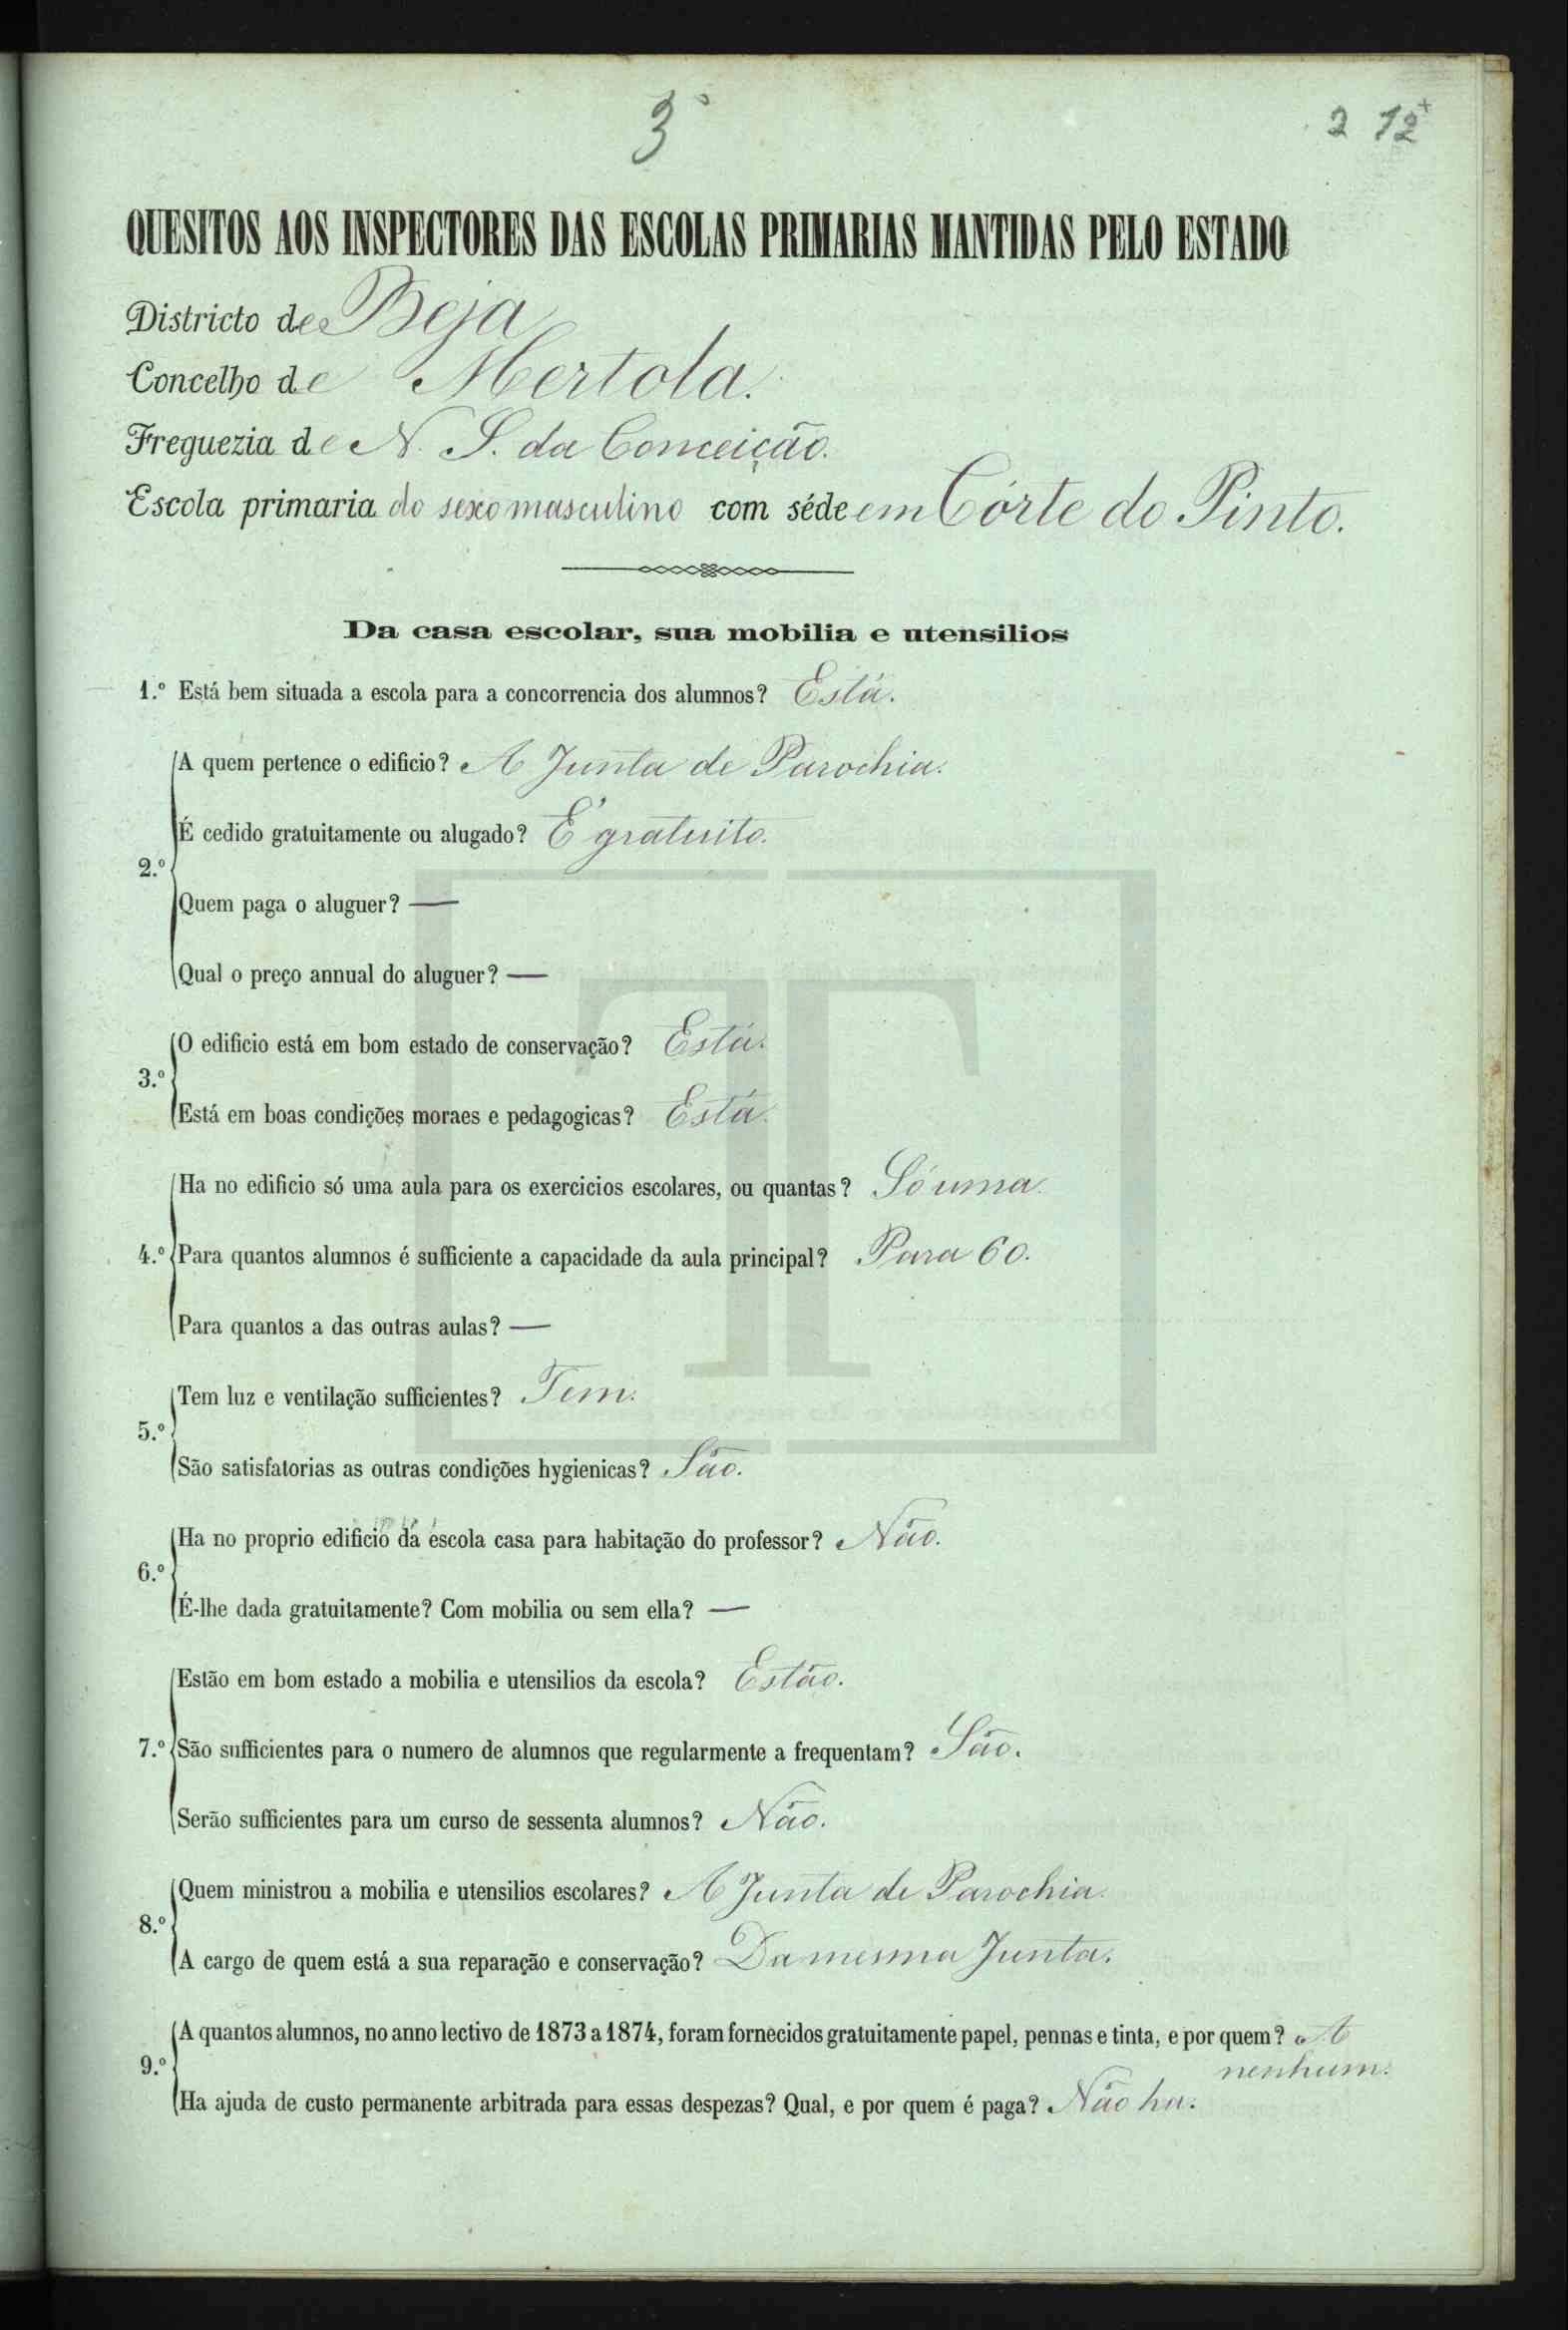 3º
2 12
QUESITOS AOS INSPECTORES DAS ESCOLAS PRIMARIAS MANTIDAS PELO ESTADO
Districto de Beja
Concelho de Mertola.
Freguezia de N. S. da Conceição.
Escola primaria do sexo masculino com séde em Córte do Pinto.
Da casa escolar, sua mobilia e utensilios
1.º Está bem situada a escola para a concorrencia dos alumnos? Está.
A quem pertence o edificio? A Junta de Parochia.
É cedido gratuitamente ou alugado? É gratuito.
2.º
Quem paga o aluguer? —
Qual o preço annual do aluguer? —
O edificio está em bom estado de conservação? Está.
3.º
Está em boas condições moraes e pedagogicas? Está.
Ha no edificio só uma aula para os exercicios escolares, ou quantas? Só uma.
4.º Para quantos alumnos é sufficiente a capacidade da aula principal? Para 60.
Para quantos a das outras aulas? —
Tem luz e ventilação sufficientes? Tem.
5.º
São satisfatorias as outras condições hygienicas? São.
Ha no proprio edificio da escola casa para habitação do professor? Não.
6.º
É-lhe dada gratuitamente? Com mobilia ou sem ella? —
Estão em bom estado a mobilia e utensilios da escola? Estão.
7.º São sufficientes para o numero de alumnos que regularmente a frequentam? São.
Serão sufficientes para um curso de sessenta alumnos? Não.
Quem ministrou a mobilia e utensilios escolares? A Junta de Parochia.
8.º
A cargo de quem está a sua reparação e conservação? Da mesma Junta.
A quantos alumnos, no anno lectivo de 1873 a 1874, foram fornecidos gratuitamente papel, pennas e tinta, e por quem? A
nenhum.
9.º
Ha ajuda de custo permanente arbitrada para essas despezas? Qual, e por quem é paga? Não ha.